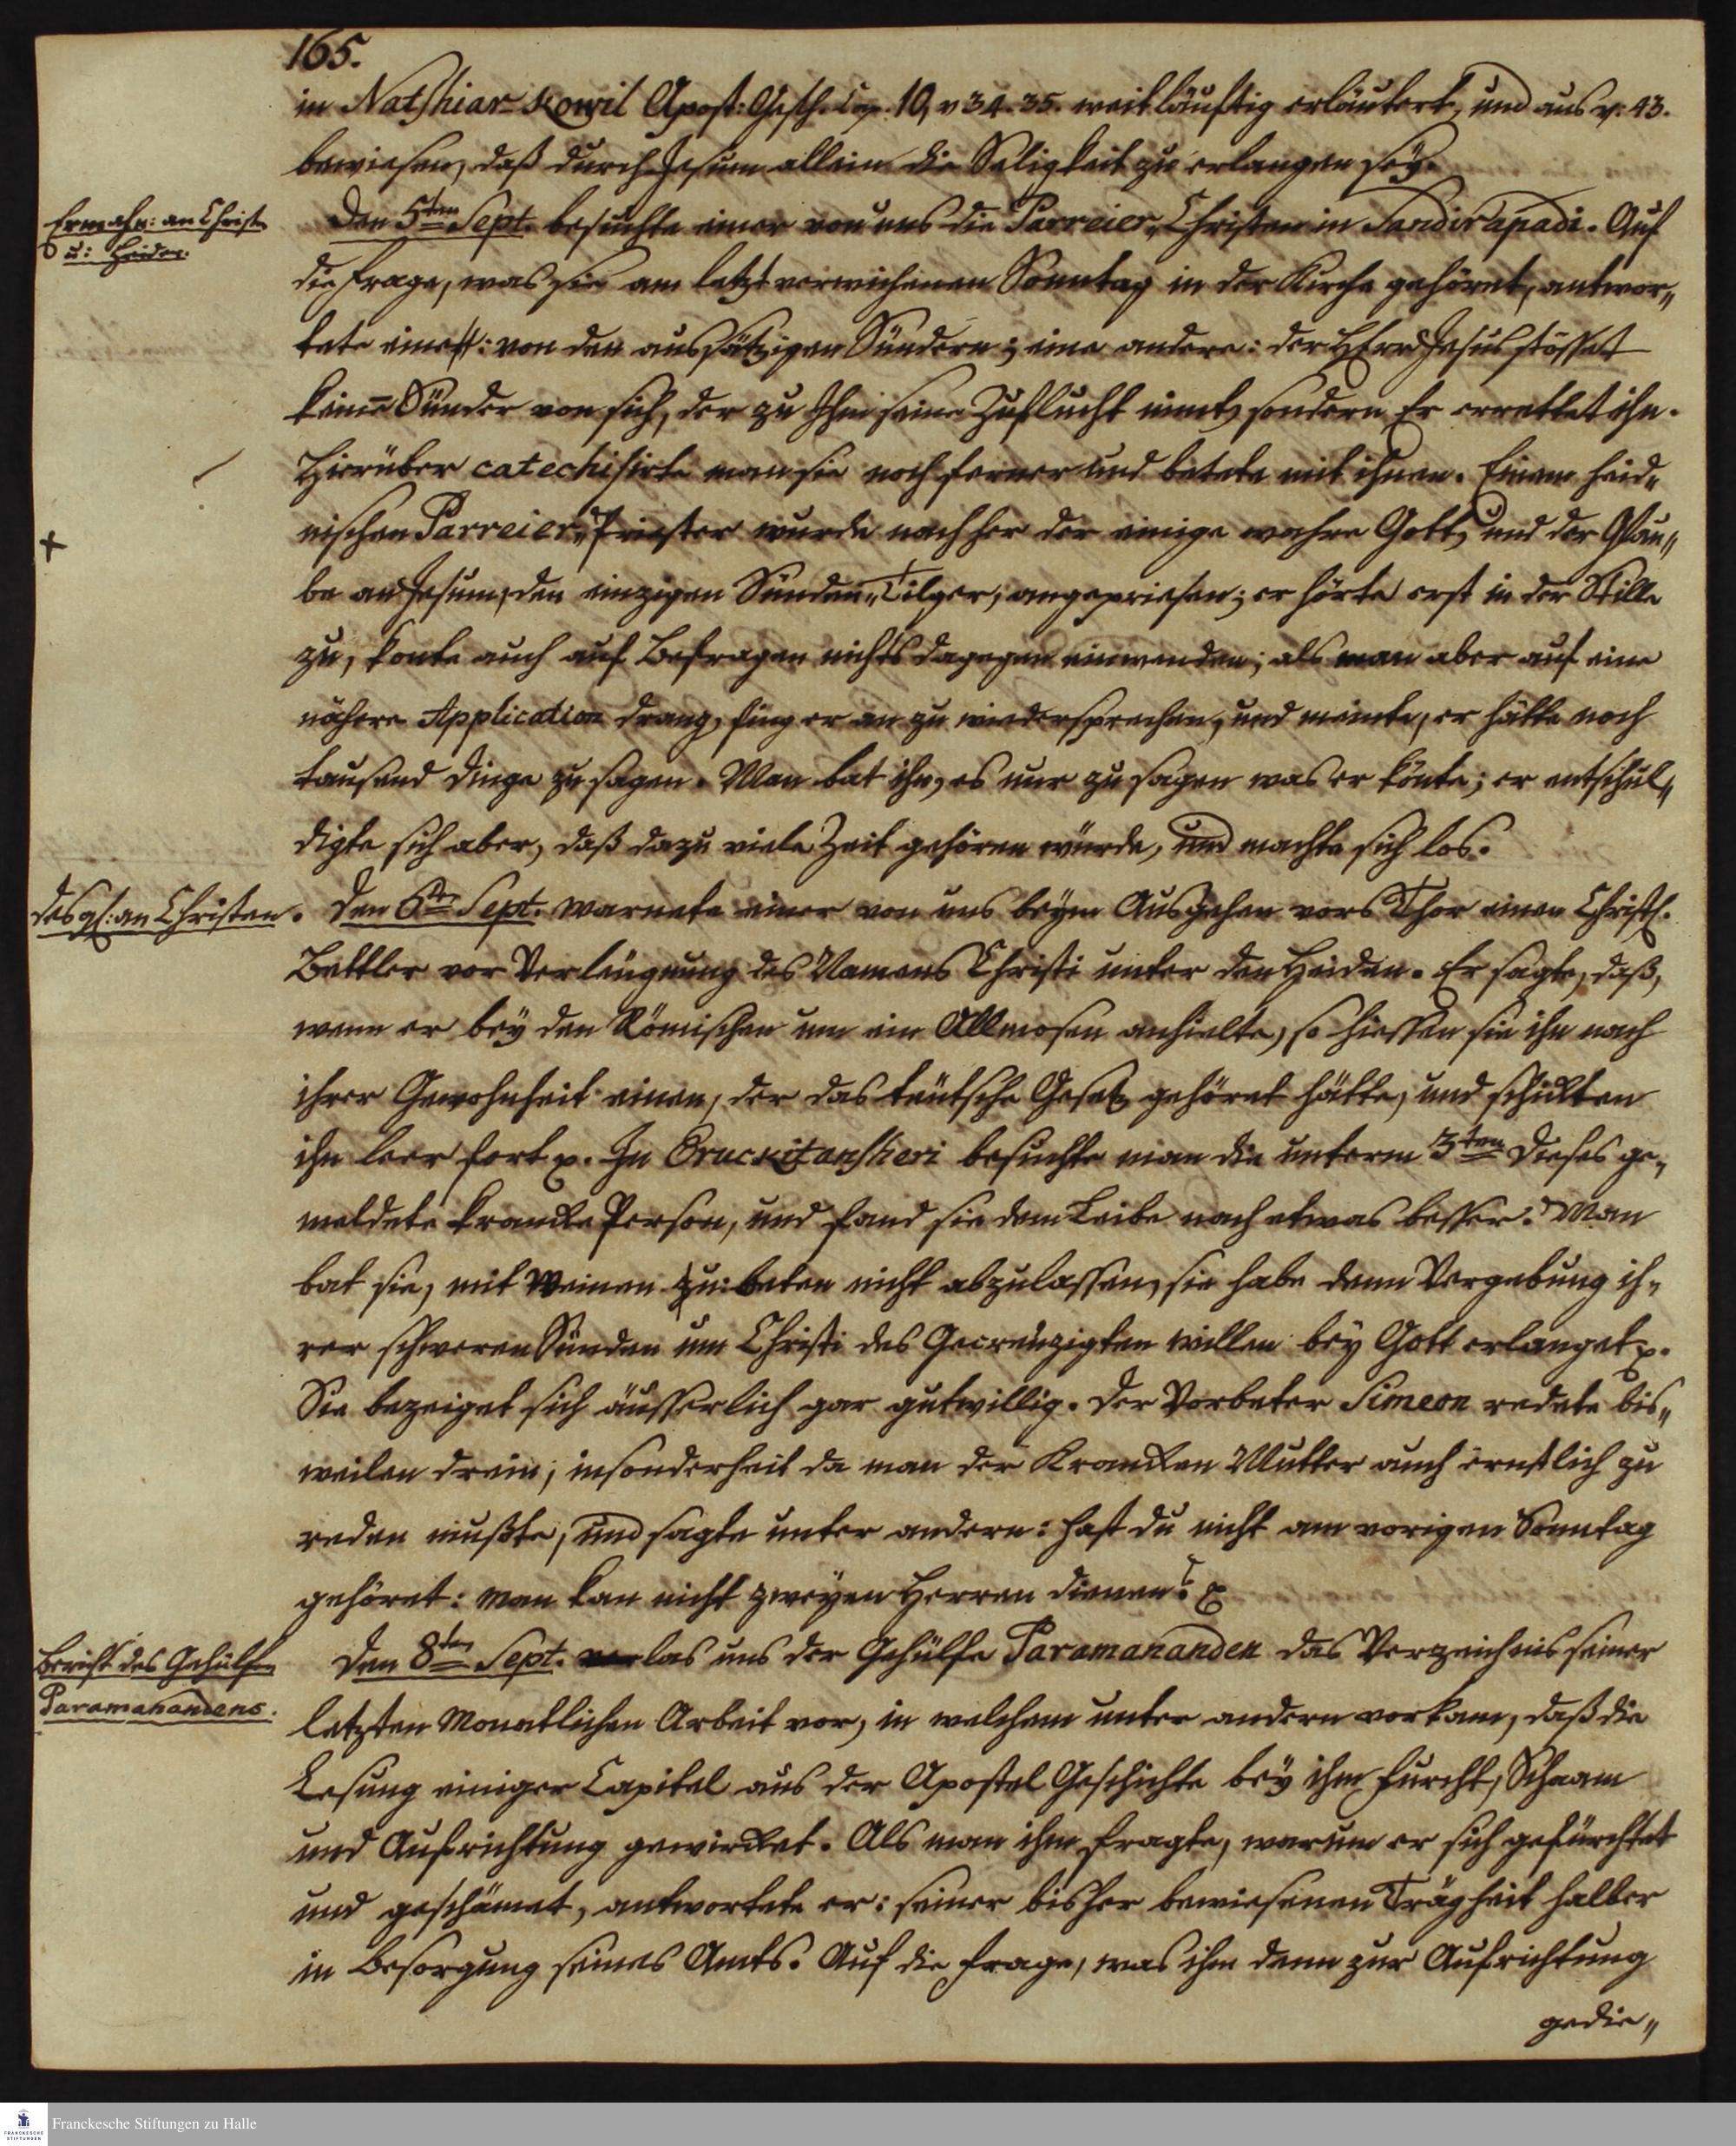 165.
in Natshiar-Kowil Apost: Gesch. Cap. 10, v 34. 35. weitläuftig erläutert, und aus v. 43.
bewiesen, daß durch Jesum allein die Seligkeit zu erlangen sey.
Ermahn: an Christ
u: Heiden.
Den 5ten Sept. besuchte einer von uns die Parreier„Christen in Sandirapadi. Auf
die Frage, was sie am letzt verwichenen Sonntag in der Kirche gehöret, antwor„
tete eine: von den aussätzigen Sündern; eine andere: der HErr Jesus stösset
keinen Sünder von sich, der zu Ihm seine Zuflucht nimt, sondern Er errettet ihn.
Hierüber catechisirte man sie noch ferner und betete mit ihnen. Einem heid„
nischen Parreier„Priester wurde nachher der einige wahre Gott, und der Glau„
be an Jesum, den einzigen Sünden„Tilger, angepriesen; er hörte erst in der Stille
zu, konte auch auf Befragen nichts dagegen einwenden; als man aber auf eine
nähere Application drang, fing er an zu wiedersprechen, und meinte, er hätte noch
tausend Dinge zu sagen. Man bat ihn, es nur zu sagen was er könte; er entschul„
digte sich aber, daß dazu viele Zeit gehören würde, und machte sich los.
desgl: an Christen.
Den 6ten Sept. warnete einer von uns beym Ausgehen vors Thor einen Christl.
Bettler vor Verleugnung des Namens Christi unter den Heiden. Er sagte, daß,
wenn er bey den Römischen um ein Allmosen anhielte, so hiessen sie ihn nach
ihrer Gewohnheit einen, der das teütsche Gesetz gehöret hätte, und schickten
ihn leer fort p. In Oruckitansheri besuchte man die unterm 3ten dieses ge„
meldete krancke Person, und fand sie dem Leibe nach etwas besser. Man
bat sie, mit Weinen zu beten nicht abzulassen, sie habe denn Vergebung ih„
rer schweren Sünden um Christi des Gecreuzigten willen bey Gott erlanget p.
Sie bezeiget sich äusserlich gar gutwillig. Der Vorbeter Simeon redete bis„
weilen drein; insonderheit da man der Krancken Mutter auch ernstlich zu
reden mußte, und sagte unter andern: hast du nicht am vorigen Sonntag
gehöret: man kan nicht zweyen Herren dienen? p
Bericht des Gehülfen
Paramanandens.
Den 8ten Sept. las uns der Gehülfe Paramananden das Verzeichnis seiner
letzten Monatlichen Arbeit vor, in welchem unter andern vorkam, daß die
Lesung einiger Capitel aus der Apostel Geschichte bey ihm Furcht, Schaam
und Aufrichtung gewircket. Als man ihn fragte, warum er sich gefürchtet
und geschämet, antwortete er: seiner bisher bewiesenen Trägheit halber
in Besorgung seines Amts. Auf die Frage, was ihm denn zur Aufrichtung
gedie„
Franckesche Stiftungen zu Halle